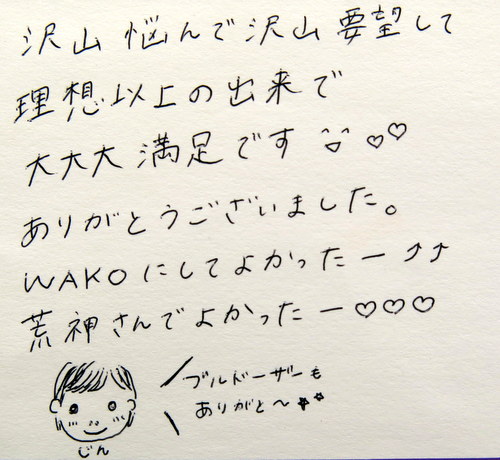 沢山 悩んで沢山 要望して
理想以上の出来で
大大大 満足です ♡♡
ありがとうございました。
WAKOにしてよかったー⤴⤴
荒神さんでよかったー♡♡♡
ブルドーザーも
ありがと〜
じん